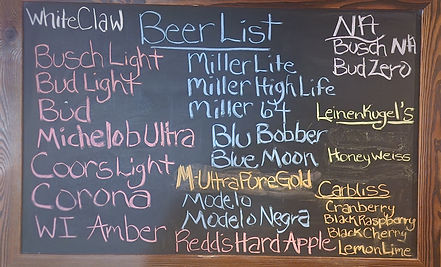 WhiteClaw
Beer List
Busch Light
Bud Light
Bud
Michelob Ultra
Coors Light
Corona
WI Amber
Miller Lite
Miller High Life
Miller 64
Blu Bobber
Blue Moon
M-Ultra Pure Gold
Modelo
Modelo Negra
Redd's Hard Apple
NA
Busch NA
Bud Zero
Leinenkugel's
Honey Weiss
Carbliss
Cranberry
Black Raspberry
Black Cherry
Lemon Lime